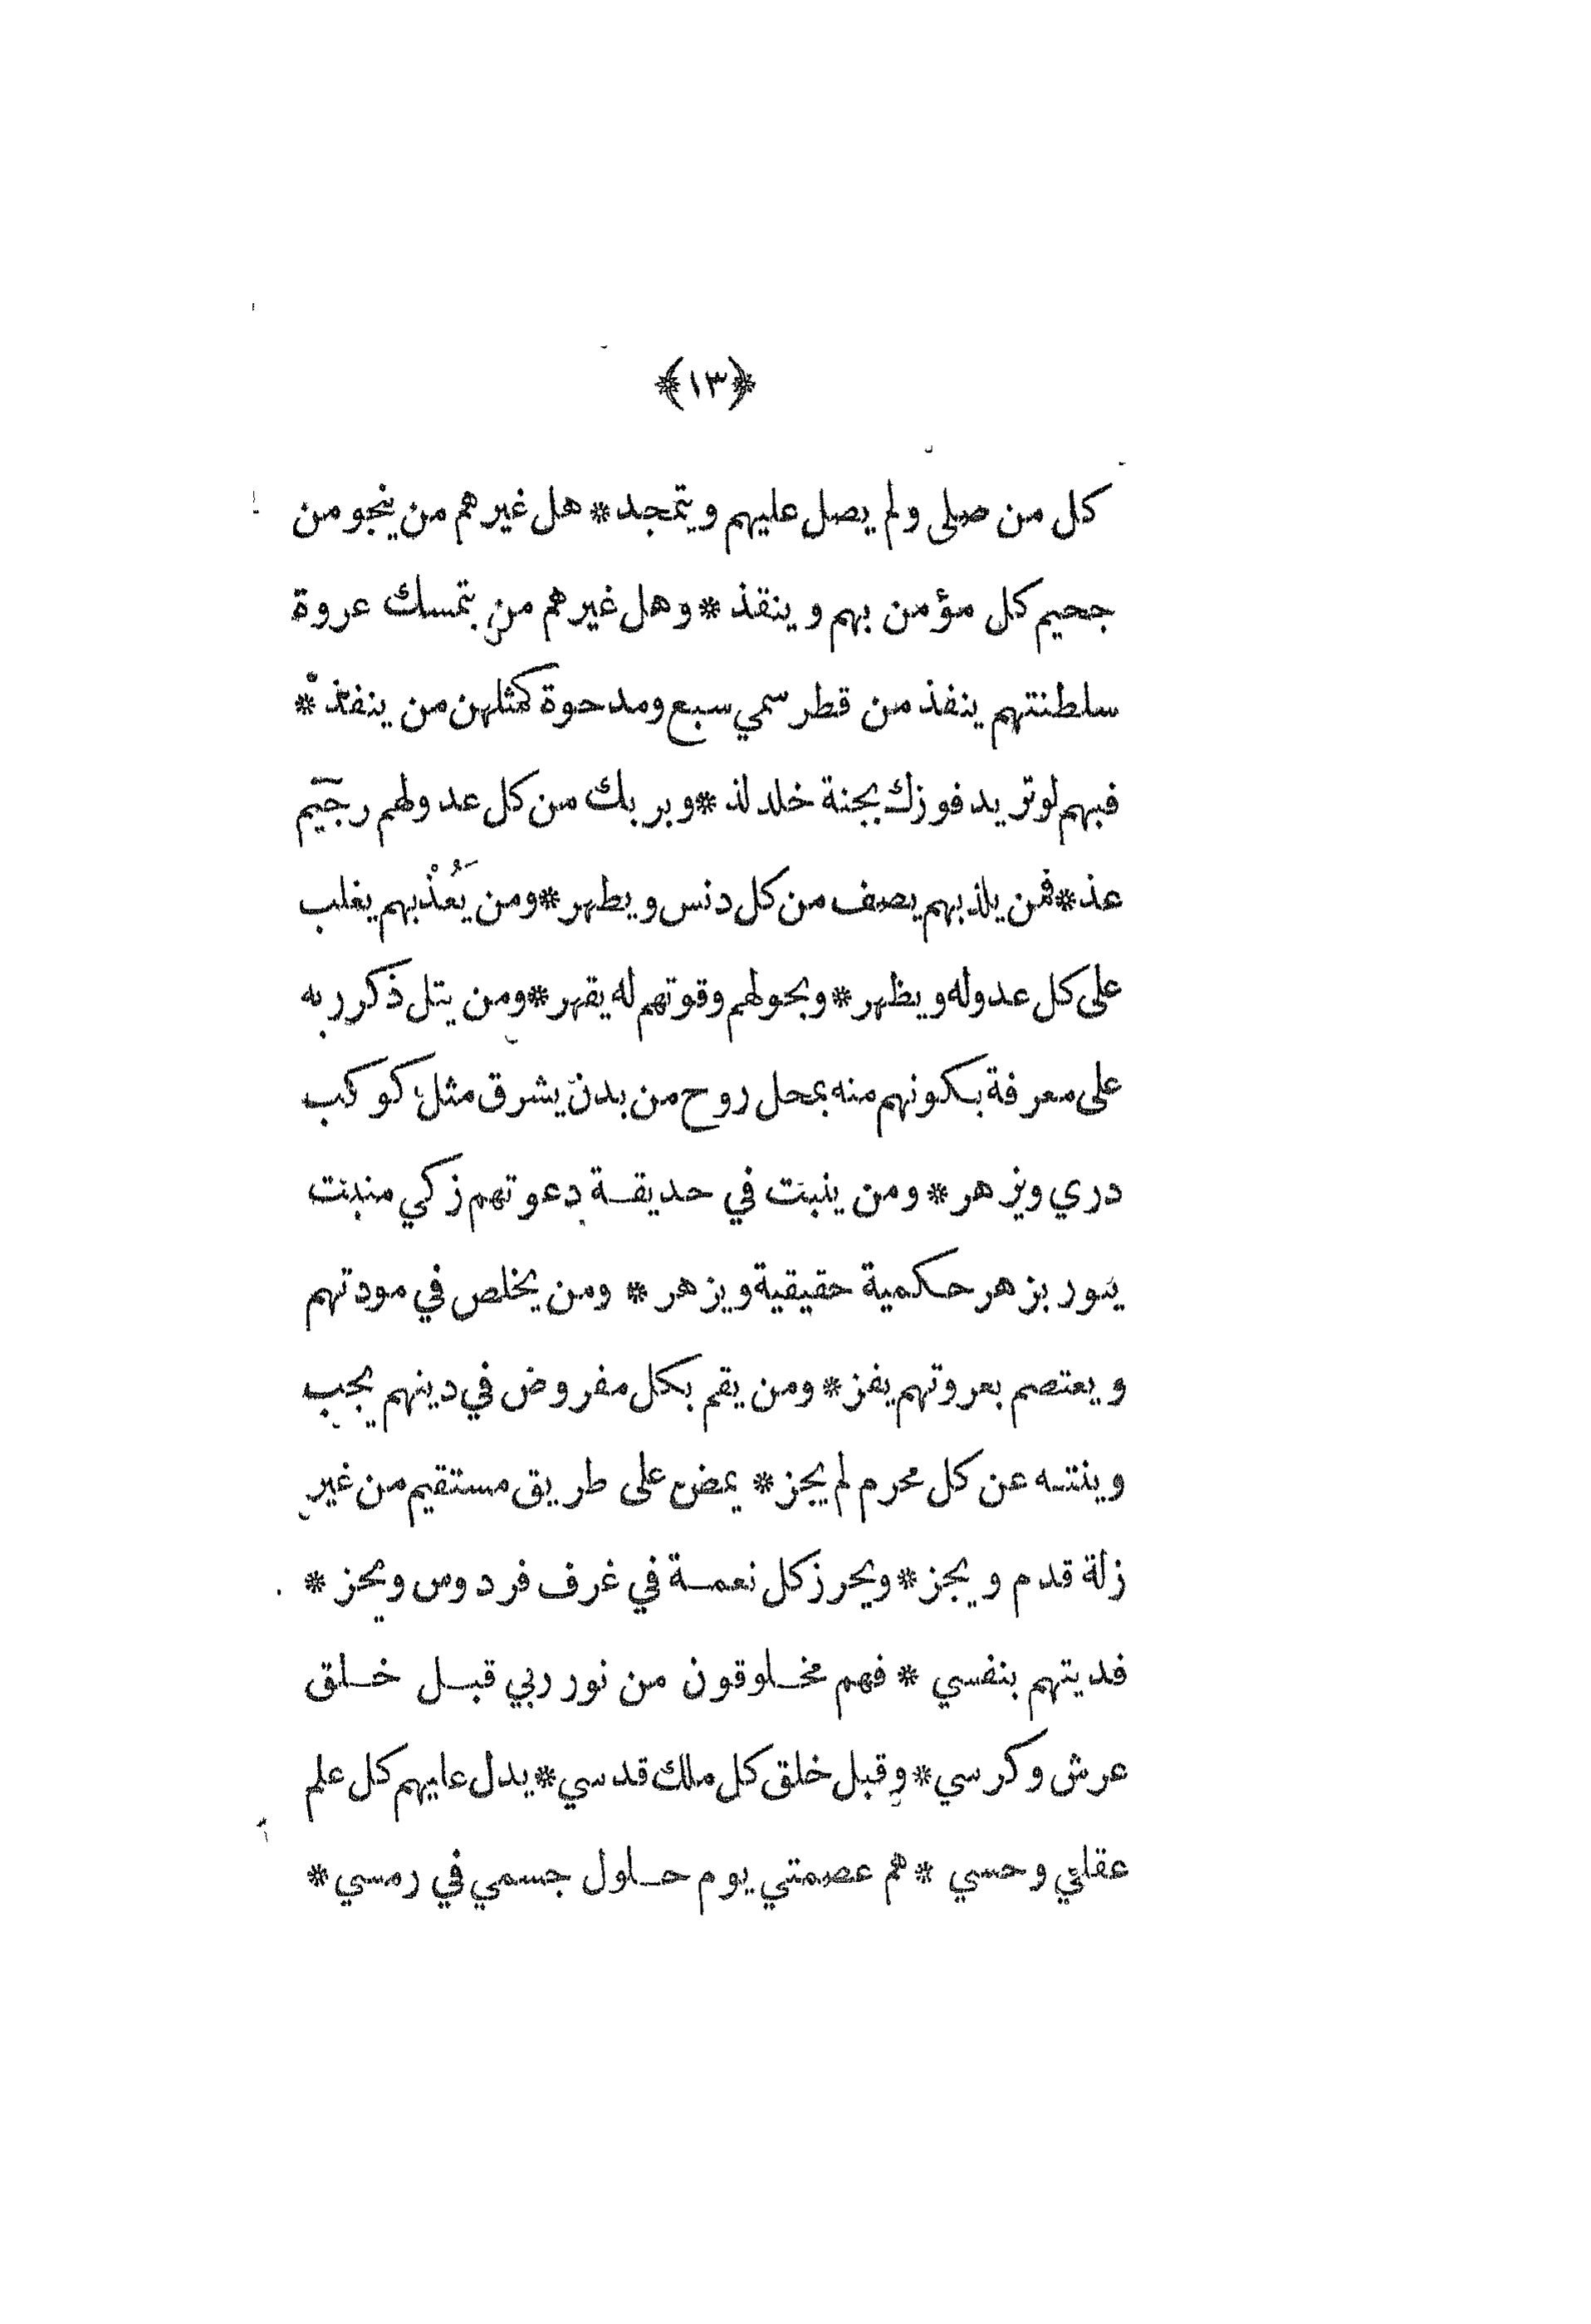 ﴿١٣﴾
كل من صلى ولم يصل عليهم ويتمجد * هل غيرهم من ينجو من
جحيم كل مؤمن بهم وينقذ * وهل غيرهم من بتمسك عروة
سلطنتهم ينفذ من قطر سمي سبع ومدحوة كمثلهن من ينفذ *
فبهم لو تريد فوزك بجنة خلد لذ * وبربك من كل عدو لهم رجيم
عذ * فمن يلذ بهم يصف من كل دنس ويطهر * ومن يَعُذْ بهم يغلب
على كل عدو له ويظهر * وبحولهم وقوتهم له يقهر * ومن يتل ذكر ربه
على معرفة بكونهم منه بمحل روح من بدن يشرق مثل كوكب
دري ويزهر * ومن ينبت في حديقة دعوتهم زكي منبت
ينور بزهر حكمية حقيقية ويزهر * ومن يخلص في مودتهم
ويعتصم بعروتهم يفز * ومن يقم بكل مفروض في دينهم يجب
وينته عن كل محرم لم يجز * يمض على طريق مستقيم من غير
زلة قدم ويجز * ويحرز كل نعمة في غرف فردوس ويحز *
فديتهم بنفسي * فهم مخلوقون من نور ربي قبل خلق
عرش وكرسي * وقبل خلق كل ملك قدسي * يدل عليهم كل علم
عقلي وحسي * هم عصمتي يوم حلول جسمي في رمسي *